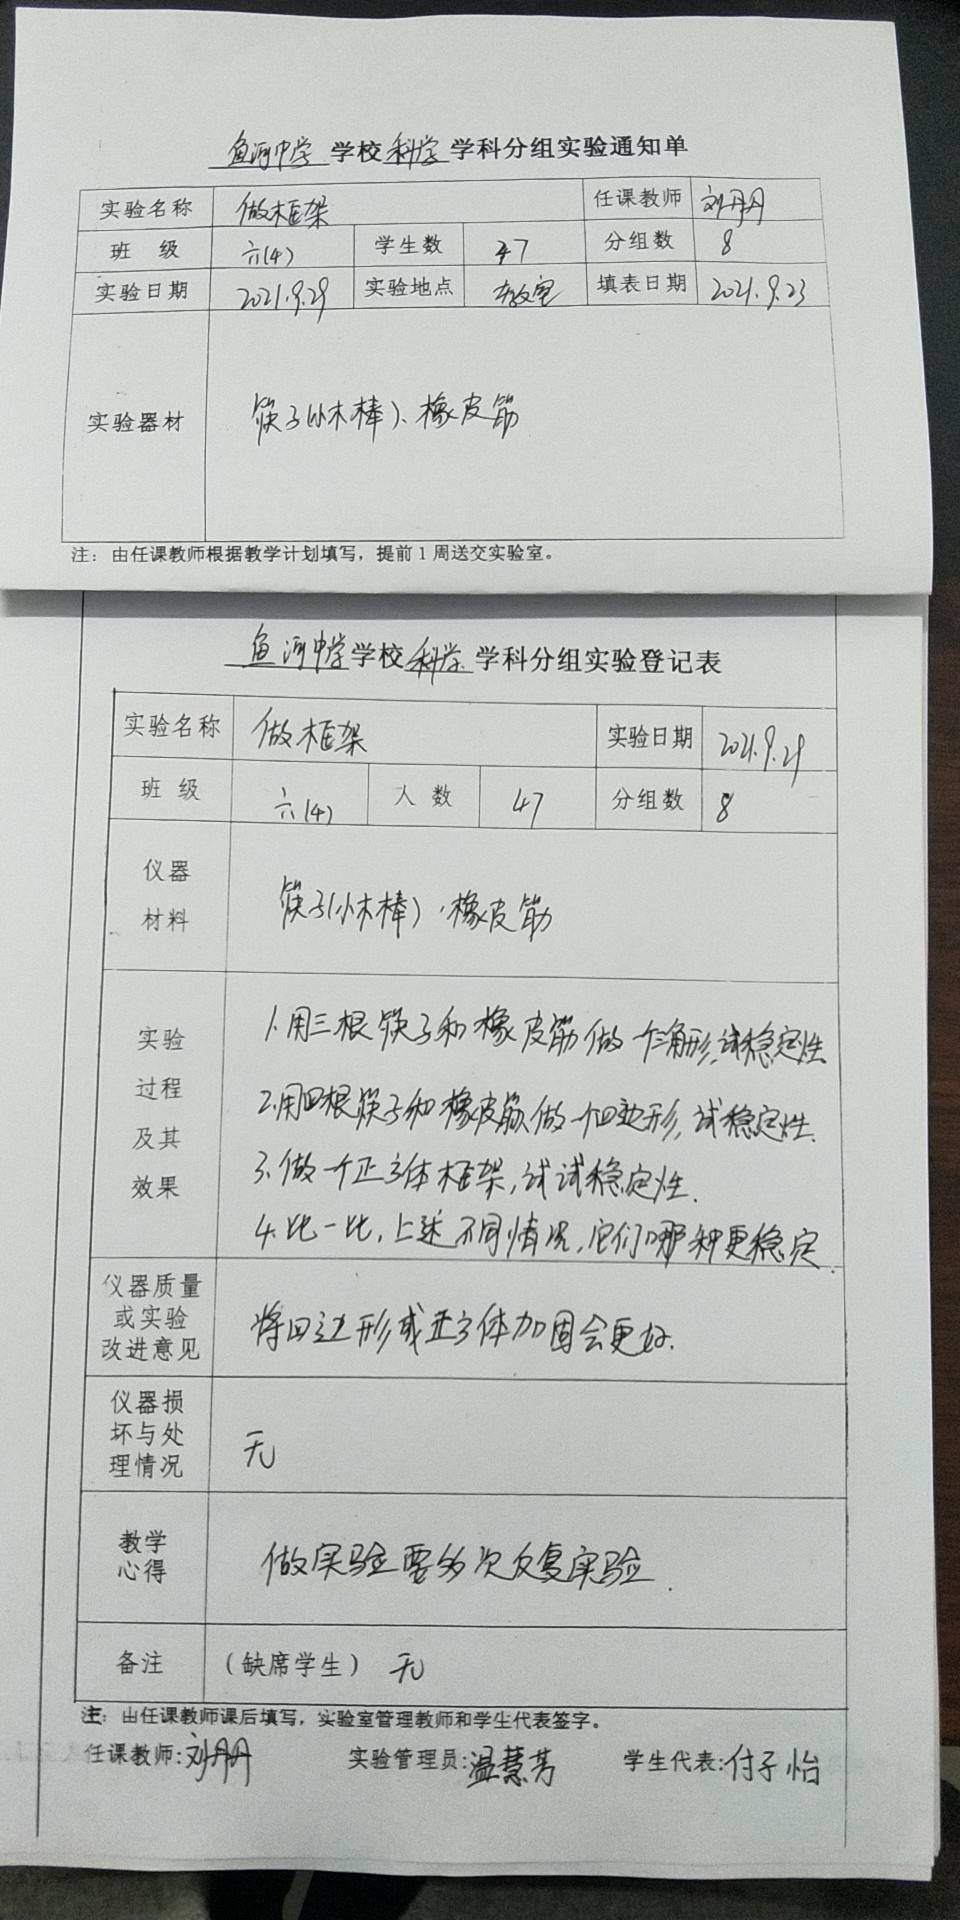 鱼河中学 学校 科学 学科分组实验通知单
实验名称 做框架 任课教师 刘丹丹
班 级 六(4) 学生数 47 分组数 8
实验日期 2021.9.29 实验地点 教室 填表日期 2021.9.23
实验器材 筷子(小木棒)、橡皮筋
注：由任课教师根据教学计划填写，提前1周送交实验室。
鱼河中学 学校 科学 学科分组实验登记表
实验名称 做框架 实验日期 2021.9.29
班 级 六(4) 人 数 47 分组数 8
仪器
材料
筷子(小木棒)、橡皮筋
实验
过程
及其
效果
1.用三根筷子和橡皮筋做一个三角形,试稳定性
2.用四根筷子和橡皮筋做一个四边形,试稳定性.
3.做一个正方体框架,试试稳定性.
4.比一比,上述不同情况,它们哪种更稳定.
仪器质量
或实验
改进意见
将四边形或正方体加固会更好.
仪器损
坏与处
理情况
无
教学
心得
做实验要多次反复实验.
备注 （缺席学生） 无
注：由任课教师课后填写，实验室管理教师和学生代表签字。
任课教师:刘丹丹 实验管理员:温慧芳 学生代表:付子怡